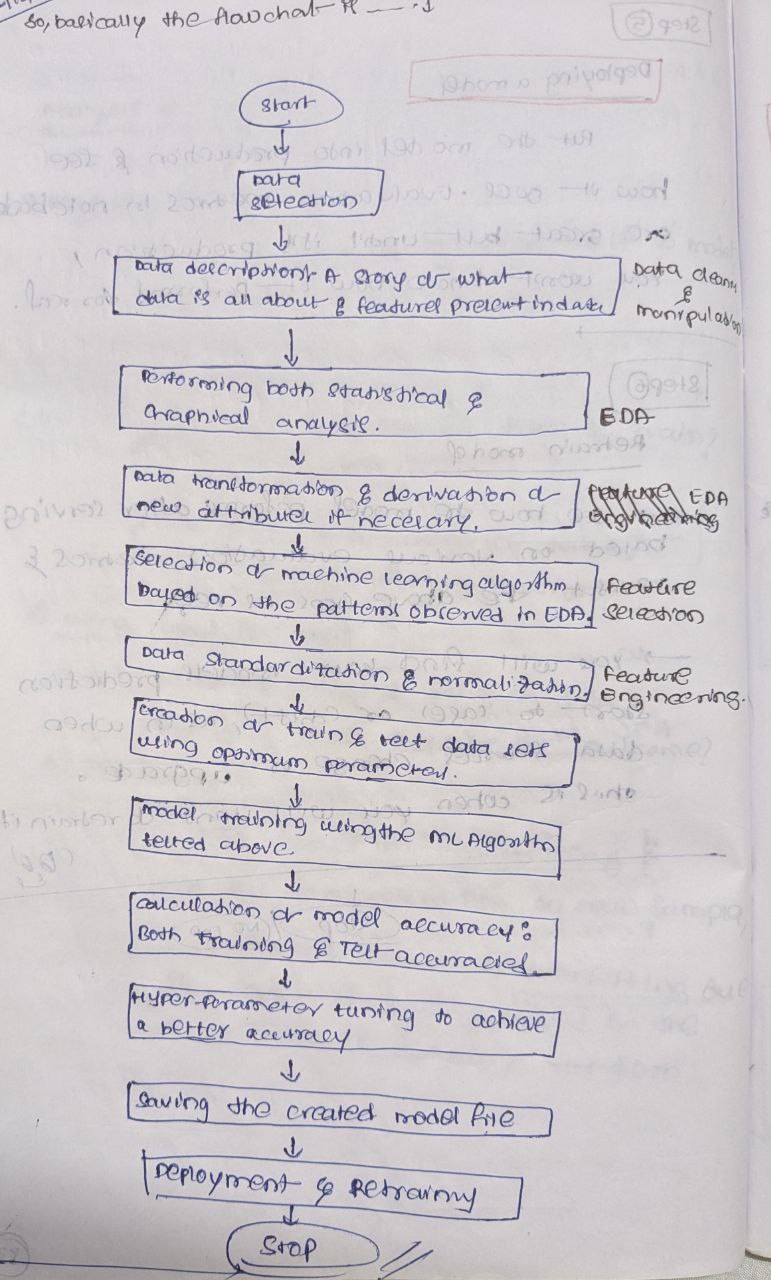 so, basically the flowchat is
Start
Data
selection
Data description:- A story of what
data is all about & features present in data
Data cleaning
&
manipulation
Performing both statistical &
Graphical analysis.
EDA
Data transformation & derivation of
new attributes if necesary.
Feature EDA
engineering
Selection of machine learning algorithm
based on the patterns observed in EDA.
Feature
selection
Data Standarditation & normalization.
Feature
Engineering.
Creation of train & test data sets
using optimum parameters.
Model training using the ML Algorithm
tested above.
Calculation of model accuracy:
Both training & Test accuracies.
Hyper-Parameter tuning to achieve
a better accuracy
Saving the created model file
Deployment & Retraining
Stop